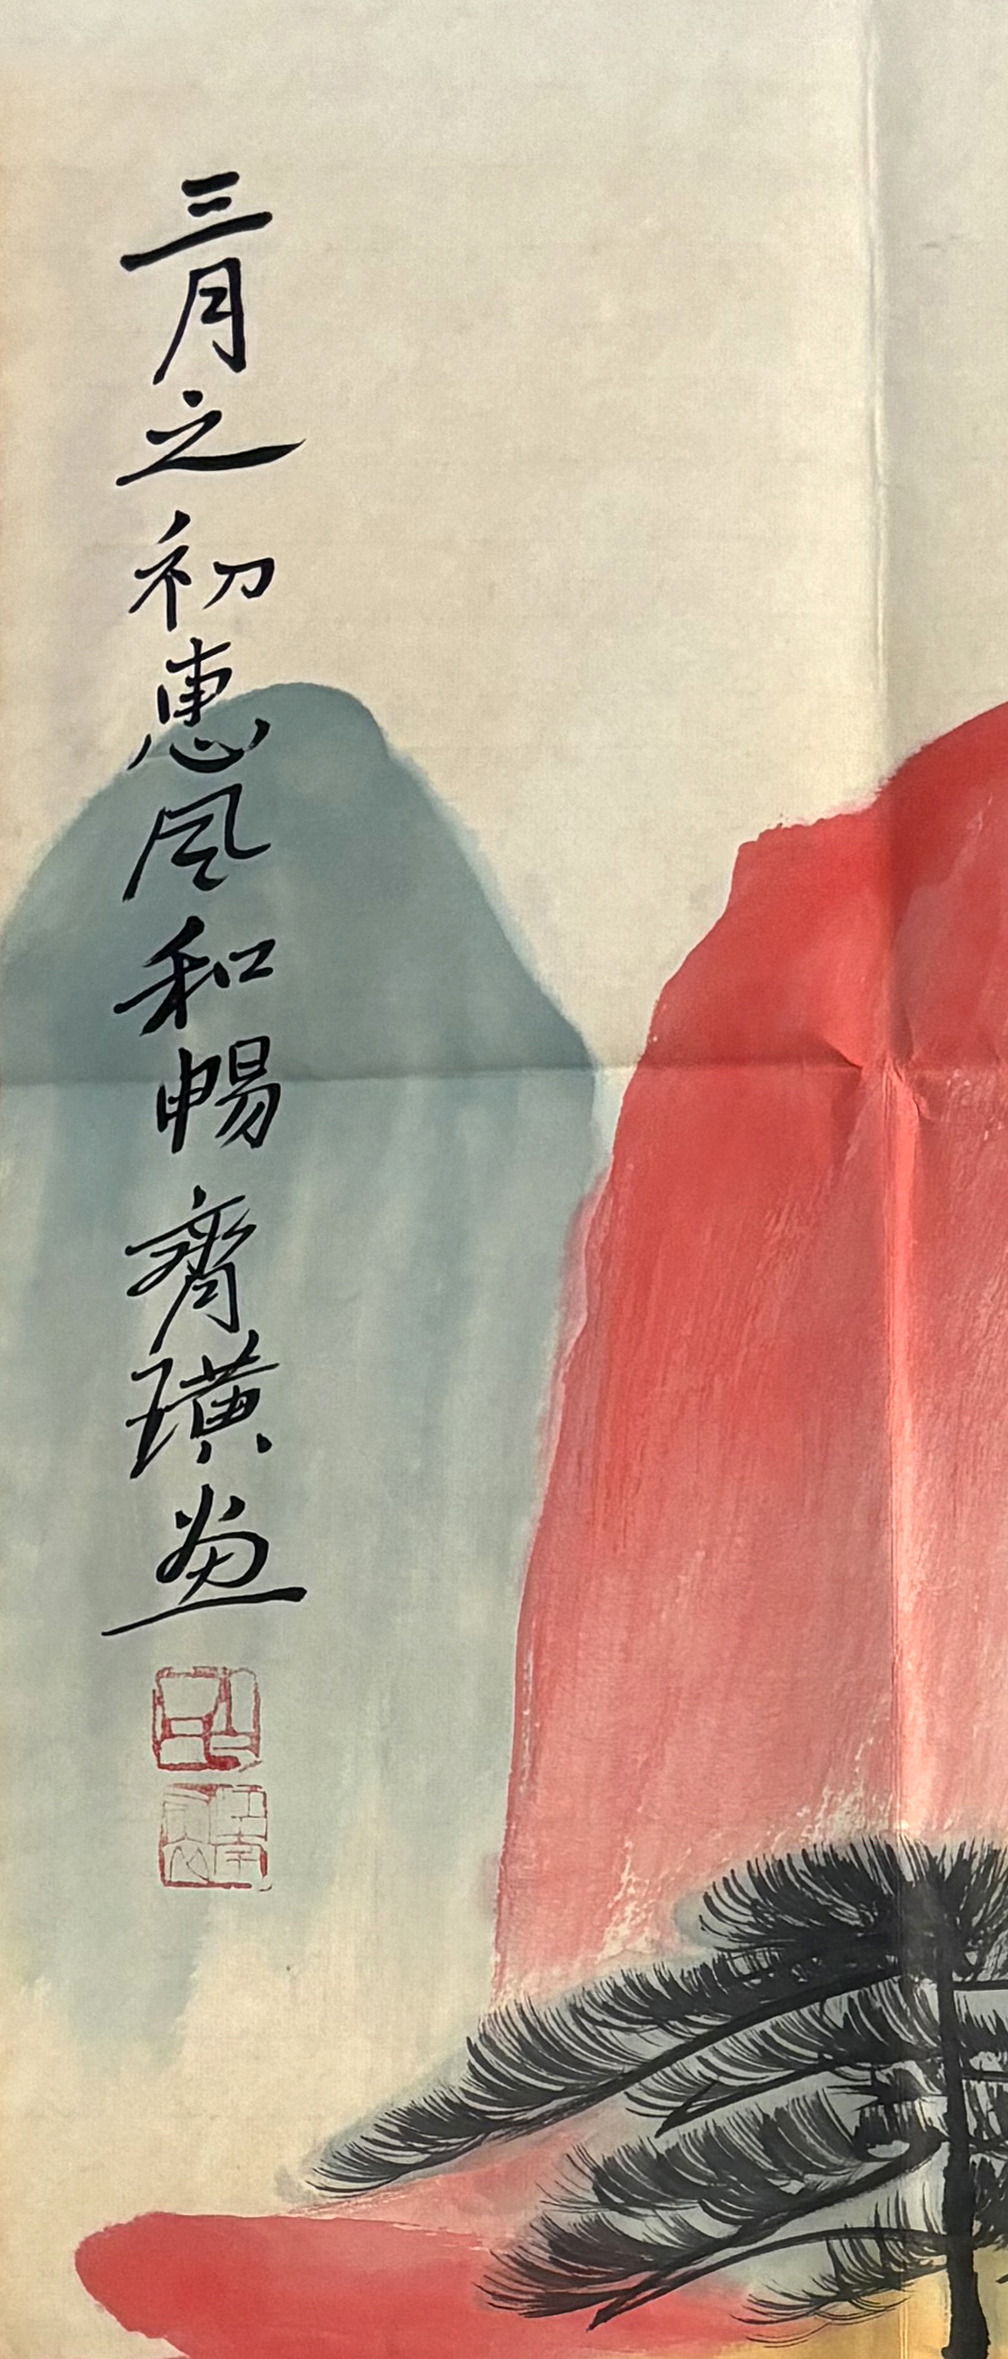 三月之初惠风和暢 齊璜画